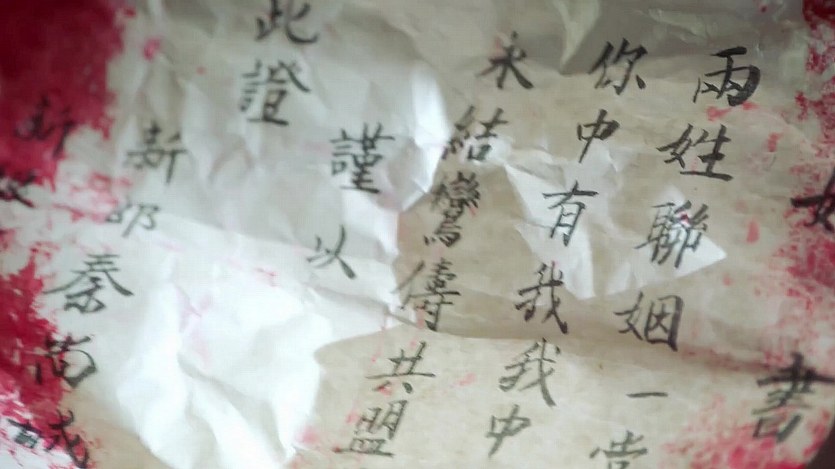 書
兩姓聯姻一堂
你中有我我中
永結鸞儔共盟
謹以
此證
新郎秦尚城
新